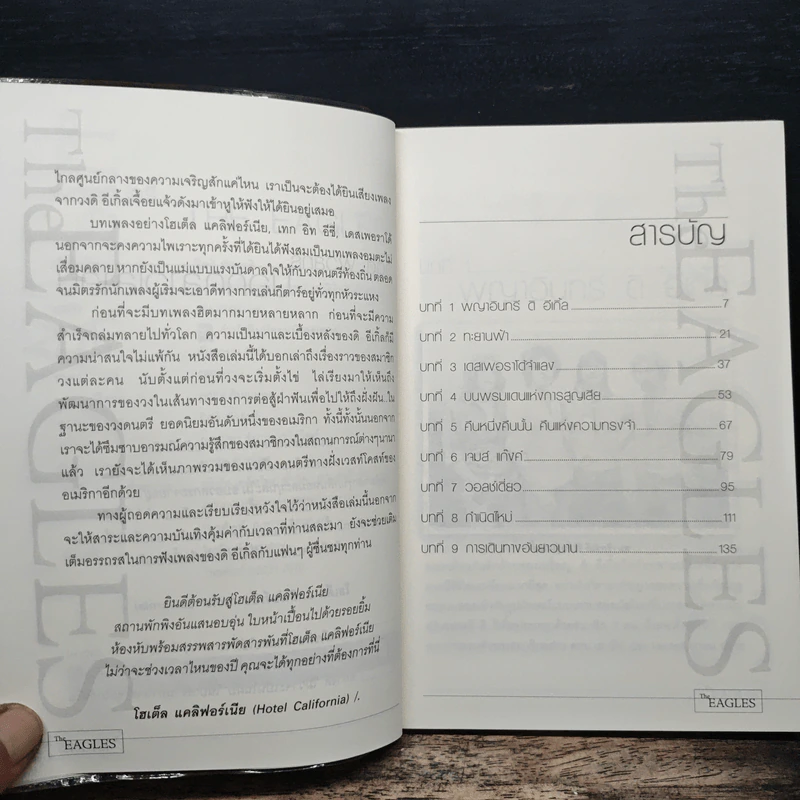 The EAGLES
ไกลศูนย์กลางของความเจริญสักแค่ไหน เราเป็นจะต้องได้ยินเสียงเพลง
จากวงดิ อีเกิ้ลเจื้อยแจ้วดังมาเข้าหูให้ฟังให้ได้ยินอยู่เสมอ
บทเพลงอย่างโฮเต็ล แคลิฟอร์เนีย, เทก อิท อีซี่, เดสเพอราโด้
นอกจากจะคงความไพเราะทุกครั้งที่ได้ยินได้ฟังสมเป็นบทเพลงอมตะไม่
เสื่อมคลาย หากยังเป็นแม่แบบแรงบันดาลใจให้กับวงดนตรีท้องถิ่น ตลอด
จนมิตรรักนักเพลงผู้เริ่มจะเอาดีทางการเล่นกีตาร์อยู่ทั่วทุกหัวระแหง
ก่อนที่จะมีบทเพลงฮิตมากมายหลายหลาก ก่อนที่จะมีความ
สำเร็จถล่มทลายไปทั่วโลก ความเป็นมาและเบื้องหลังของดิ อีเกิ้ลก็มี
ความน่าสนใจไม่แพ้กัน หนังสือเล่มนี้ได้บอกเล่าถึงเรื่องราวของสมาชิก
วงแต่ละคน นับตั้งแต่ก่อนที่วงจะเริ่มตั้งไข่ ไล่เรียงมาให้เห็นถึง
พัฒนาการของวงในเส้นทางของการต่อสู้ฝ่าฟันเพื่อไปให้ถึงฝั่งฝัน ใน
ฐานะของวงดนตรี ยอดนิยมอันดับหนึ่งของอเมริกา ทั้งนี้ทั้งนั้นนอกจาก
เราจะได้ซึมซาบอารมณ์ความรู้สึกของสมาชิกวงในสถานการณ์ต่างๆนานา
แล้ว เรายังจะได้เห็นภาพรวมของแวดวงดนตรีทางฝั่งเวสท์โคสท์ของ
อเมริกาอีกด้วย
ทางผู้ถอดความและเรียบเรียงหวังใจไว้ว่าหนังสือเล่มนี้นอกจาก
จะให้สาระและความบันเทิงคุ้มค่ากับเวลาที่ท่านสละมา ยังจะช่วยเติม
เต็มอรรถรสในการฟังเพลงของดิ อีเกิ้ลกับแฟนๆ ผู้ชื่นชมทุกท่าน
ยินดีต้อนรับสู่โฮเต็ล แคลิฟอร์เนีย
สถานพักพิงอันแสนอบอุ่น ใบหน้าเปื้อนไปด้วยรอยยิ้ม
ห้องหับพร้อมสรรพสารพัดสารพันที่โฮเต็ล แคลิฟอร์เนีย
ไม่ว่าจะช่วงเวลาไหนของปี คุณจะได้ทุกอย่างที่ต้องการที่นี่
โฮเต็ล แคลิฟอร์เนีย (Hotel California) /.
The EAGLES
The EAGLES
สารบัญ
บทที่ 1 พญาอินทรี ดิ อีเกิ้ล 7
บทที่ 2 ทะยานฟ้า 21
บทที่ 3 เดสเพอราโด้จำแลง 37
บทที่ 4 บนพรมแดนแห่งการสูญเสีย 53
บทที่ 5 คืนหนึ่งคืนนั้น คืนแห่งความทรงจำ 67
บทที่ 6 เจมส์ แก๊งค์ 79
บทที่ 7 วอลช์เดี่ยว 95
บทที่ 8 กำเนิดใหม่ 111
บทที่ 9 การเดินทางอันยาวนาน 135
The EAGLES